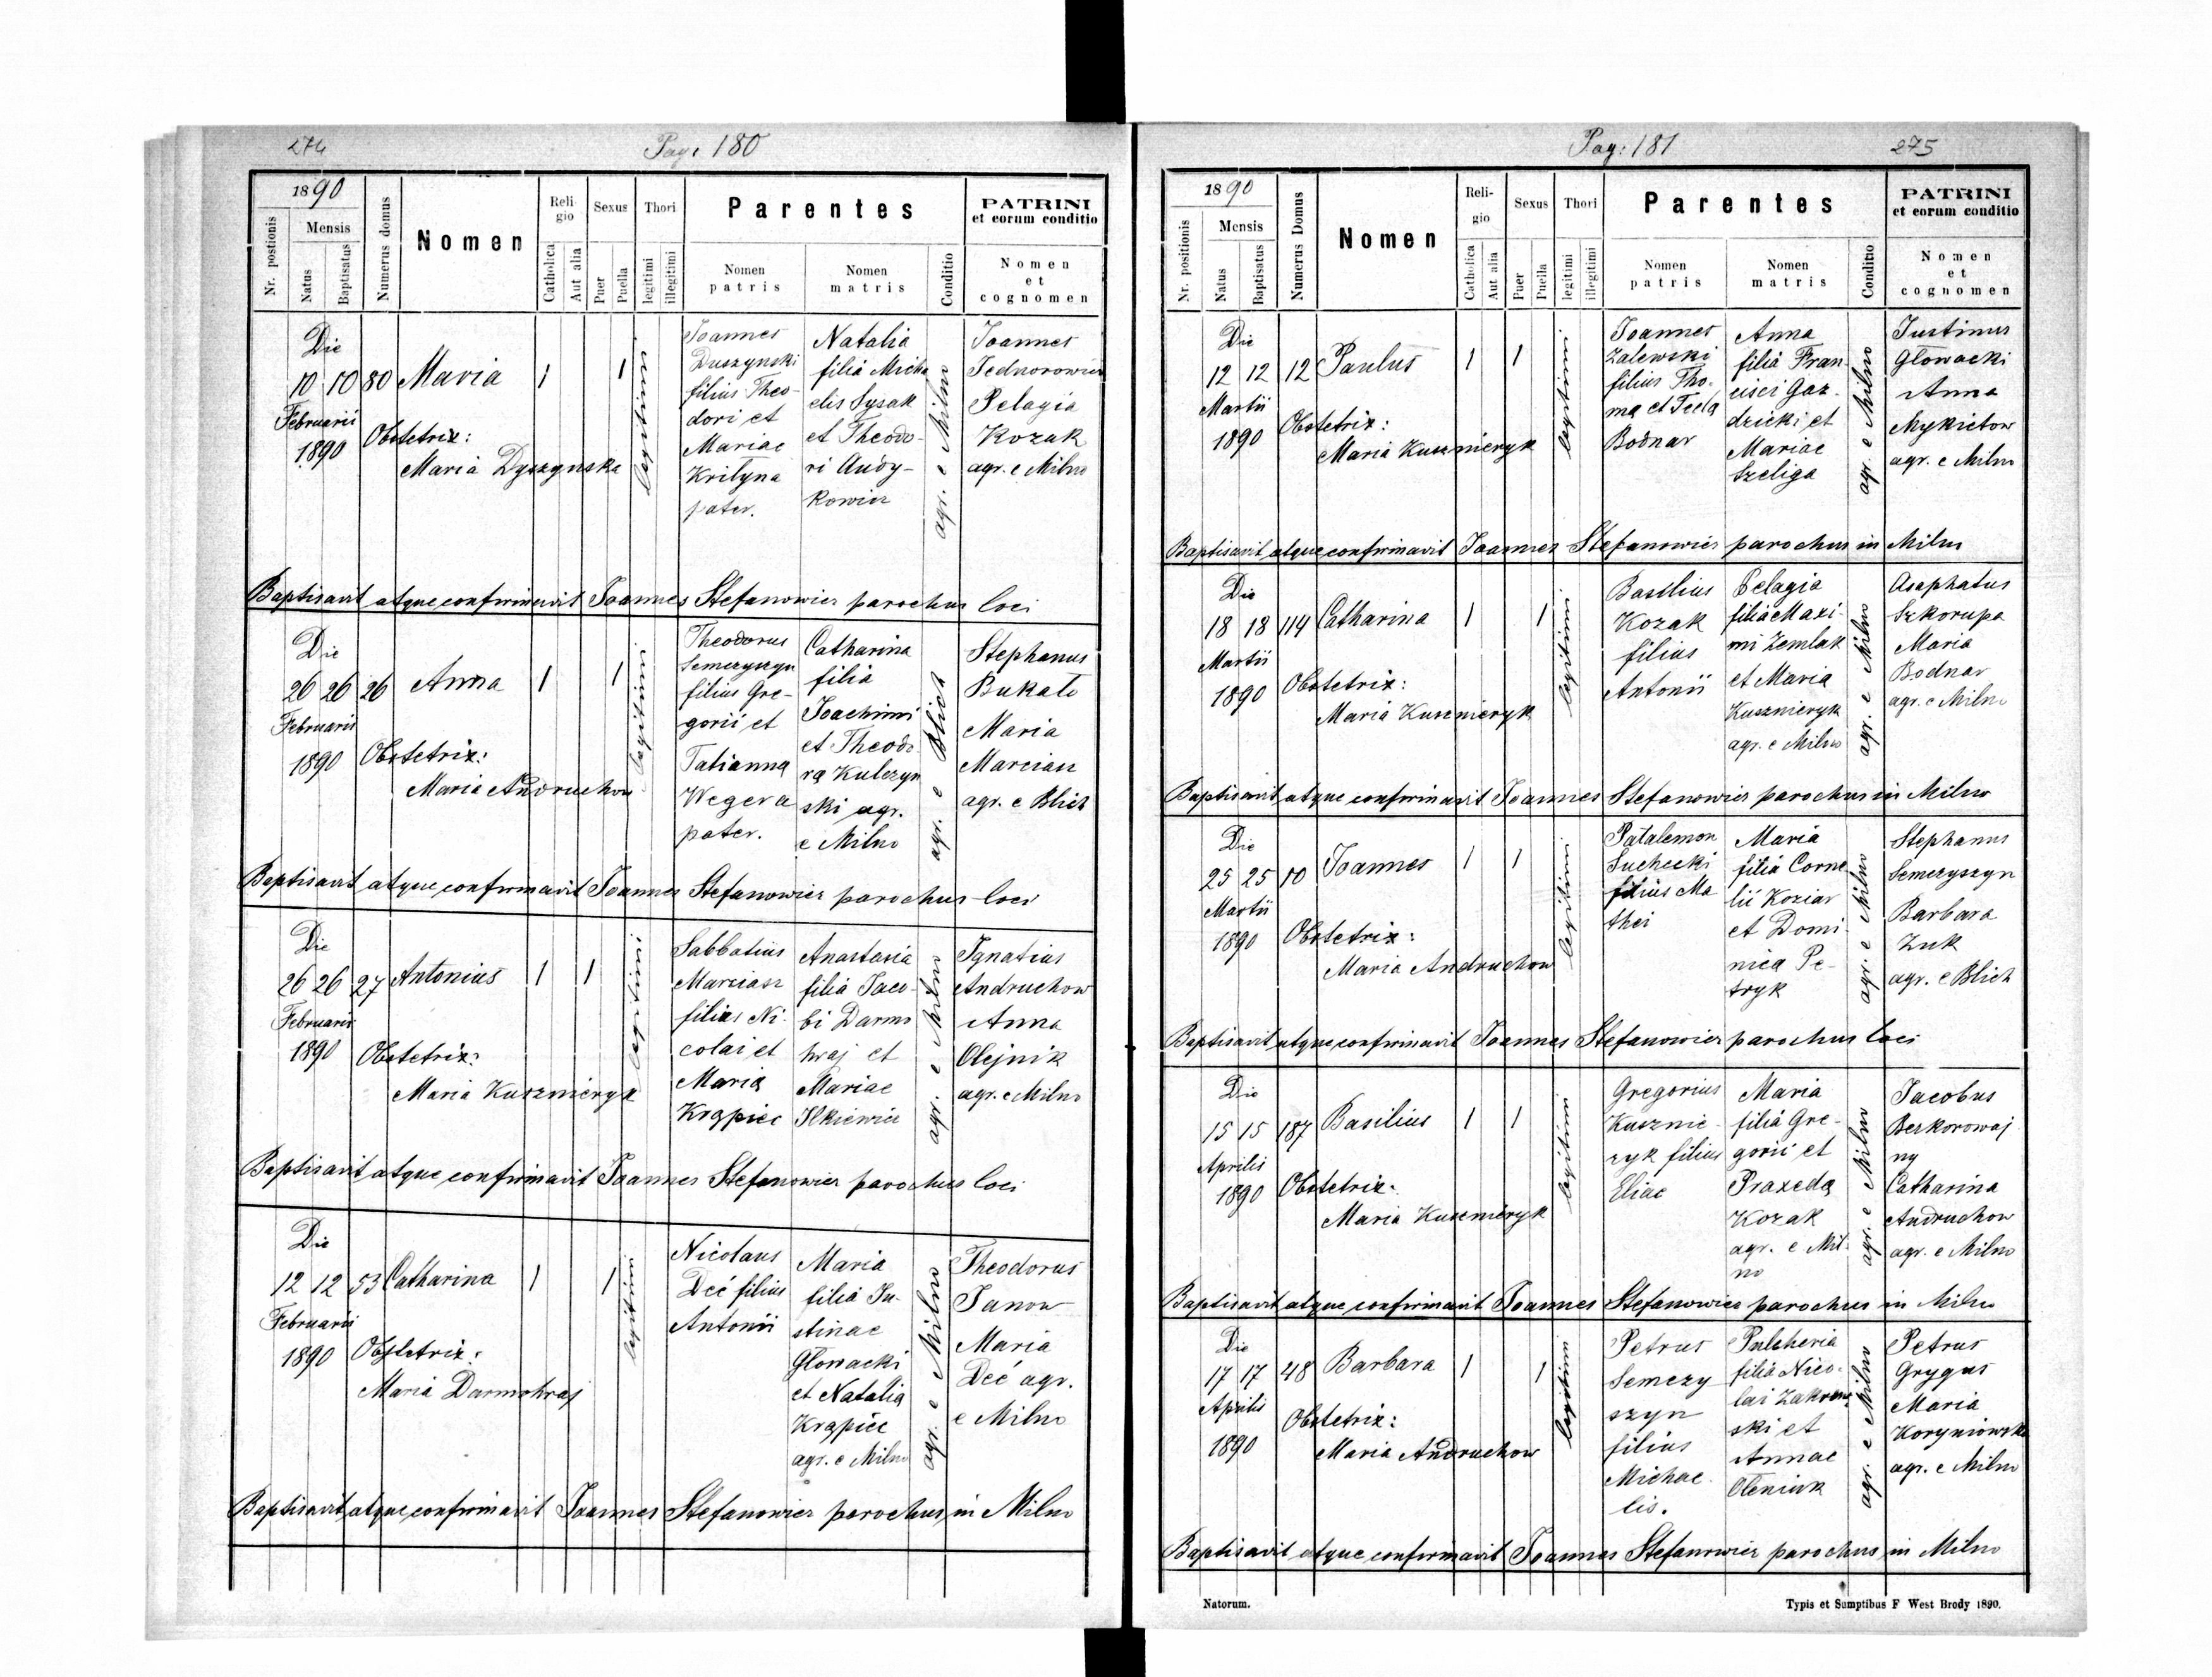 274
Pag: 180
1890
Nr. postionis
Mensis
Natus
Baptisatus
Numerus domus
Nomen
Religio
Catholica
Aut alia
Sexus
Puer
Puella
Thori
legitimi
illegitimi
Parentes
Nomen patris
Nomen matris
Conditio
PATRINI
et eorum conditio
Nomen
et
cognomen
Die
10 10 80 Maria 1 1
Februarii
1890
Obstetrix:
Maria Dyszynska
legitimi
Joannes
Duszynski
filius Theo-
dori et
Mariae
Krityna
pater.
Natalia
filia Micha
elis Sysak
et Theodo-
ri Audy-
kowicz
agr. e Milno
Joannes
Jednorowicz
Pelagia
Kozak
agr. e Milno
Baptisavit atque confirmavit Joannes Stefanowicz parochus loci
Die
26 26 26 Anna 1 1
Februarii
1890
Obstetrix:
Maria Andruchow
legitimi
Theodorus
Semczyszyn
filius Gre-
gorii et
Tatianna
Wegera
pater.
Catharina
filia
Joachimi
et Theodo
ra Kulczyn
ski agr.
e Milno
agr. e Blich
Stephanus
Bukato
Maria
Marciasz
agr. e Blich
Baptisavit atque confirmavit Joannes Stefanowicz parochus loci
Die
26 26 27 Antonius 1 1
Februarii
1890
Obstetrix:
Maria Kusznieryk
legitimi
Sabbatius
Marciasz
filius Ni-
colai et
Maria
Krąpiec
Anastasia
filia Jaco-
bi Darmo
hraj et
Mariae
Ilkiewicz
agr. e Milno
Ignatius
Andruchow
Anna
Olejnik
agr. e Milno
Baptisavit atque confirmavit Joannes Stefanowicz parochus loci
Die
12 12 53 Catharina 1 1
Februarii
1890
Obstetrix:
Maria Darmohraj
legitimi
Nicolaus
Deć filius
Antonii
Maria
filia Ju-
stinae
Głowacki
et Natalia
Krąpiec
agr. e Milno
agr. e Milno
Theodorus
Janow
Maria
Deć agr.
e Milno
Baptisavit atque confirmavit Joannes Stefanowicz parochus in Milno
Pag: 181
275
1890
Nr. positionis
Mensis
Natus
Baptisatus
Numerus Domus
Nomen
Reli-
gio
Catholica
Aut alia
Sexus
Puer
Puella
Thori
legitimi
illegitimi
Parentes
Nomen patris
Nomen matris
Conditio
PATRINI
et eorum conditio
Nomen
et
cognomen
Die
12 12 12 Paulus 1 1
Martii
1890
Obstetrix:
Maria Kusznieryk
legitimi
Joannes
Zalewski
filius Tho-
ma et Tecla
Bodnar
Anna
filia Fran-
cisci Gaz-
dzicki et
Mariae
Szeliga
agr. e Milno
Justinus
Głowacki
Anna
Mykietow
agr. e Milno
Baptisavit atque confirmavit Joannes Stefanowicz parochus in Milno
Die
18 18 114 Catharina 1 1
Martii
1890
Obstetrix:
Maria Kusznieryk
legitimi
Basilius
Kozak
filius
Antonii
Pelagia
filia Maxi-
mi Zemlak
et Maria
Kusznieryk
agr. e Milno
agr. e Milno
Asaphatus
Szkorupa
Maria
Bodnar
agr. e Milno
Baptisavit atque confirmavit Joannes Stefanowicz parochus in Milno
Die
25 25 10 Joannes 1 1
Martii
1890
Obstetrix:
Maria Andruchow
legitimi
Patalemon
Suchecki
filius Ma
thei
Maria
filia Corne
lii Koziar
et Domi-
nica Pe-
tryk
agr. e Milno
Stephanus
Semczyszyn
Barbara
Zuk
agr. e Blich
Baptisavit atque confirmavit Joannes Stefanowicz parochus loci
Die
15 15 187 Basilius 1 1
Aprilis
1890
Obstetrix:
Maria Kusznieryk
legitimi
Gregorius
Kusznie-
ryk filius
Eliae
Maria
filia Gre-
gorii et
Praxeda
Kozak
agr. e Mil-
no
agr. e Milno
Jacobus
Bezkorowaj
ny
Catharina
Andruchow
agr. e Milno
Baptisavit atque confirmavit Joannes Stefanowicz parochus in Milno
Die
17 17 48 Barbara 1 1
Aprilis
1890
Obstetrix:
Maria Andruchow
legitimi
Petrus
Semczy
szyn
filius
Michae-
lis.
Pulcheria
filia Nico-
lai
ski et
Annae
Oleniuk
agr. e Milno
Petrus
Grygus
Maria
Koryniowska
agr. e Milno
Baptisavit atque confirmavit Joannes Stefanowicz parochus in Milno
Natorum.
Typis et Sumptibus F West Brody 1890.